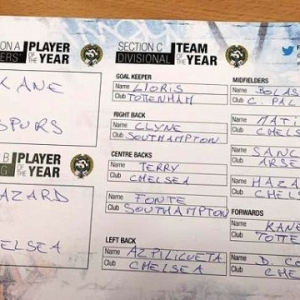 ION A
ERS'
PLAYER
OF THE YEAR
KANE
SPURS
B
PLAYER
OF THE YEAR
HAZARD
CHELSEA
SECTION C
DIVISIONAL
TEAM
OF THE YEAR
GOAL KEEPER
Name LLORIS
Club TOTTENHAM
RIGHT BACK
Name CLYNE
Club SOUTHAMPTON
CENTRE BACKS
Name TERRY
Club CHELSEA
Name FONTE
Club SOUTHAMPTON
LEFT BACK
Name AZPILIQUETA
Club CHELSEA
MIDFIELDERS
Name BOLAS
Club C. PAL
Name MATI
Club CHELS
Name SANC
Club ARSE
Name HAZA
Club CHEL
FORWARDS
Name KANE
Club TOTTE
Name D. CO
Club CHE